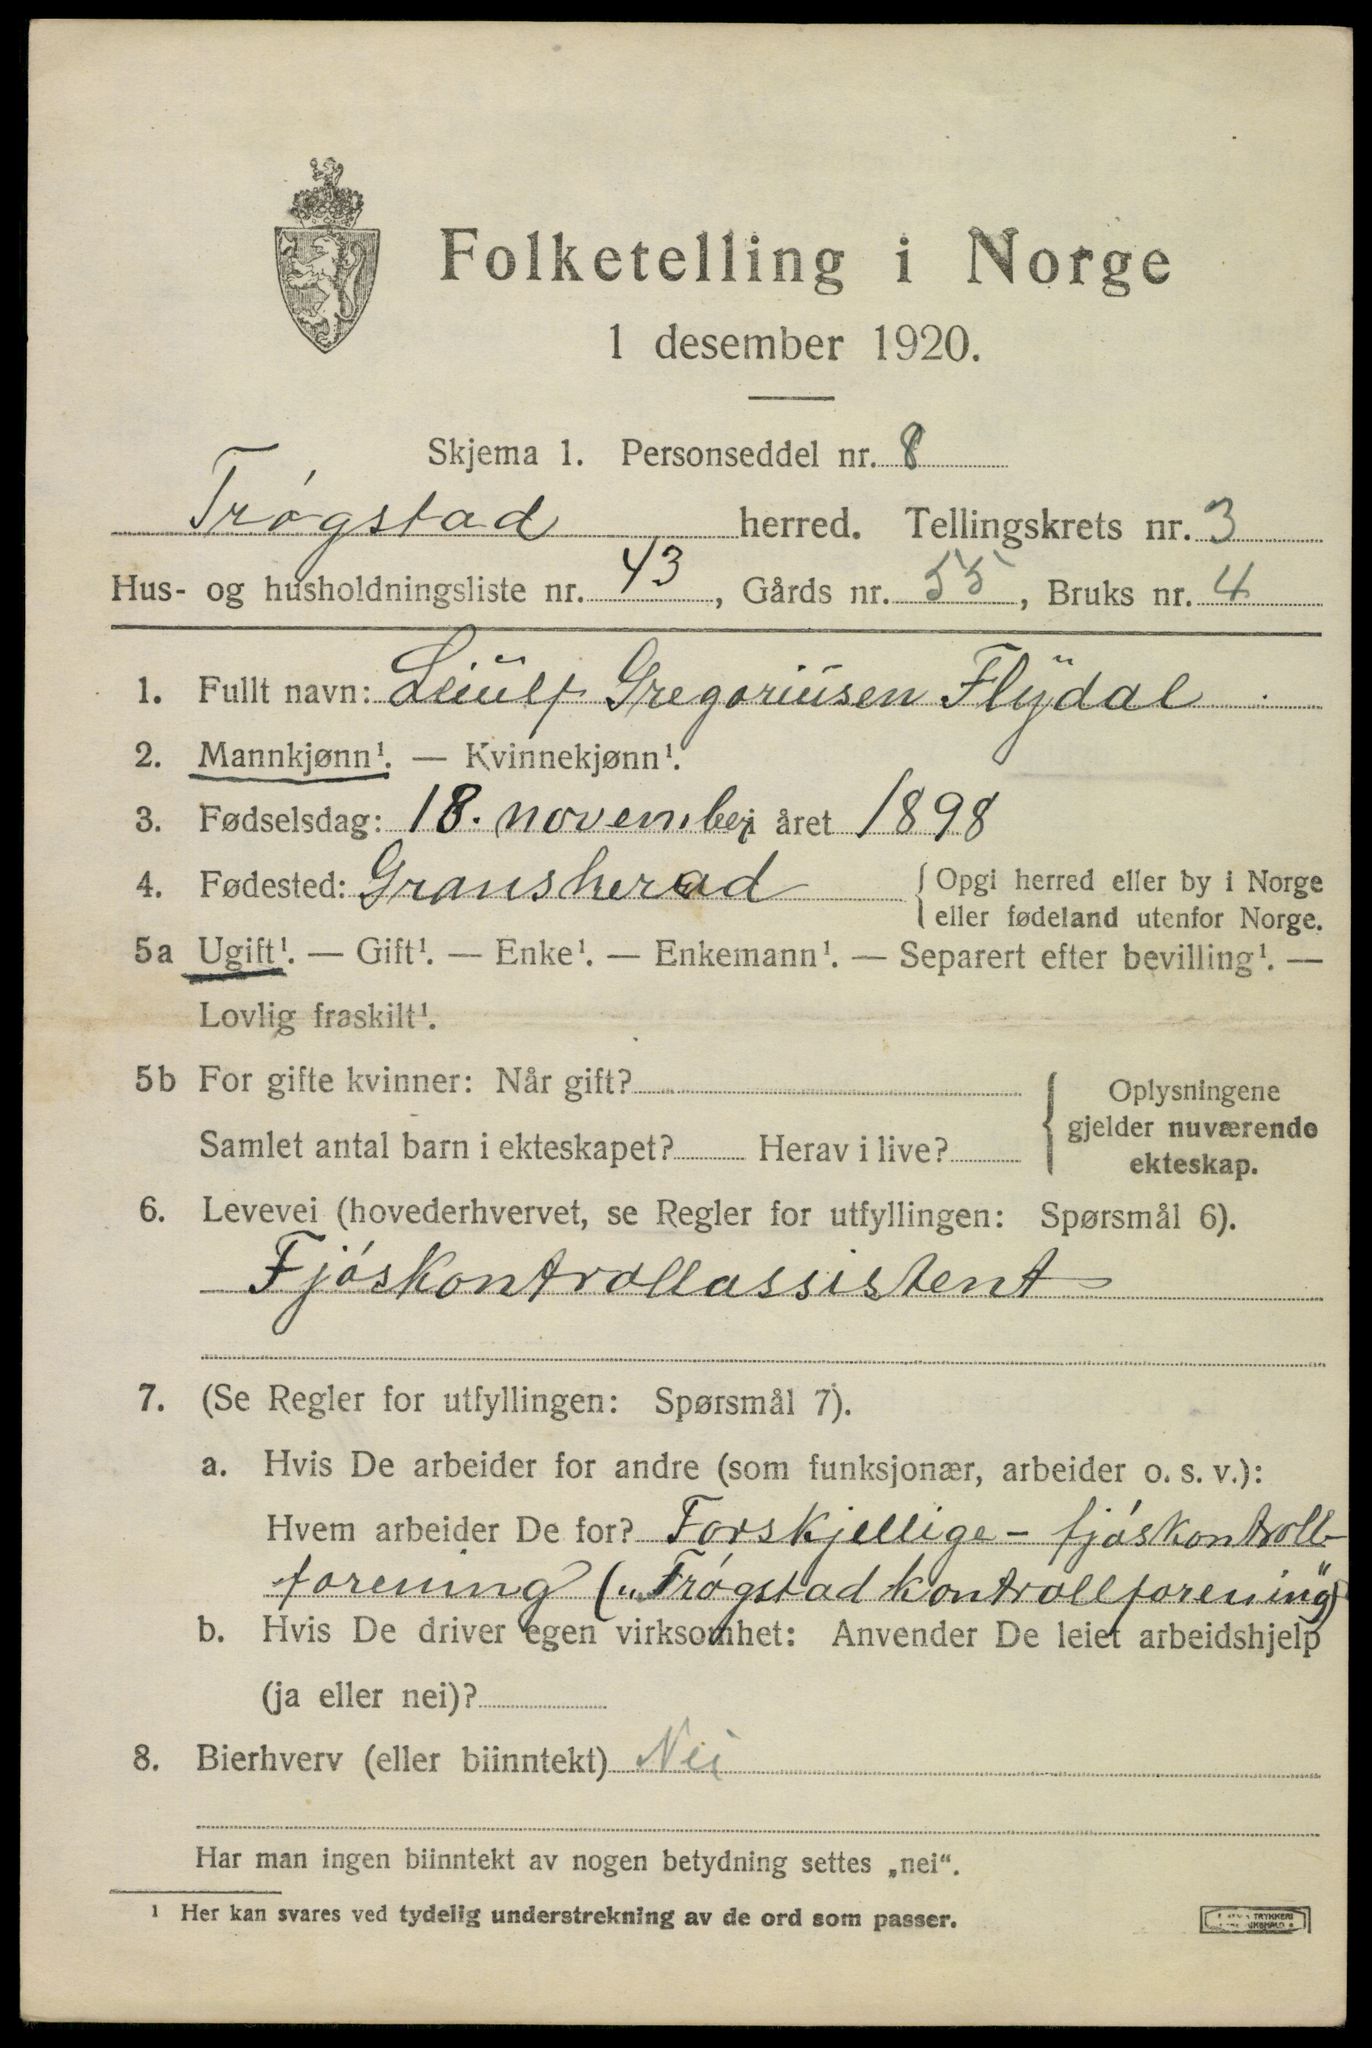 Folketelling i Norge
1 desember 1920.
Skjema 1. Personseddel nr. 8
Trøgstad herred. Tellingskrets nr. 3
Hus- og husholdningsliste nr. 43, Gårds nr. 55, Bruks nr. 4
1. Fullt navn: Leiulf Gregoriusen Flydal
2. Mannkjønn¹. — Kvinnekjønn¹.
3. Fødselsdag: 18. november i året 1898
4. Fødested: Gransherad { Opgi herred eller by i Norge
eller fødeland utenfor Norge.
5a Ugift¹. — Gift¹. — Enke¹. — Enkemann¹. — Separert efter bevilling¹. —
Lovlig fraskilt¹.
5b For gifte kvinner: Når gift?
Samlet antal barn i ekteskapet? Herav i live?
{ Oplysningene
gjelder nuværende
ekteskap.
6. Levevei (hovederhvervet, se Regler for utfyllingen: Spørsmål 6).
Fjóskontrollassistent
7. (Se Regler for utfyllingen: Spørsmål 7).
a. Hvis De arbeider for andre (som funksjonær, arbeider o. s. v.):
Hvem arbeider De for? Forskjellige - fjóskontroll-
forening („Trøgstad kontrollforening")
b. Hvis De driver egen virksomhet: Anvender De leiet arbeidshjelp
(ja eller nei)?
8. Bierhverv (eller biinntekt) Nei
Har man ingen biinntekt av nogen betydning settes „nei“.
¹ Her kan svares ved tydelig understrekning av de ord som passer.